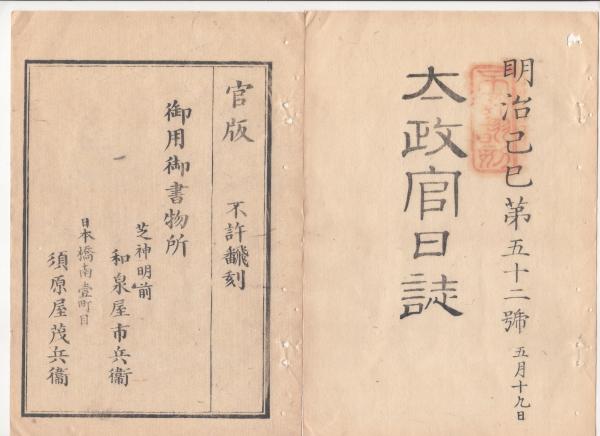 明治己巳第五十二號 五月十九日
太政官日誌
官版 不許飜刻
御用御書物所
芝神明前
和泉屋市兵衞
日本橋南壹町目
須原屋茂兵衞